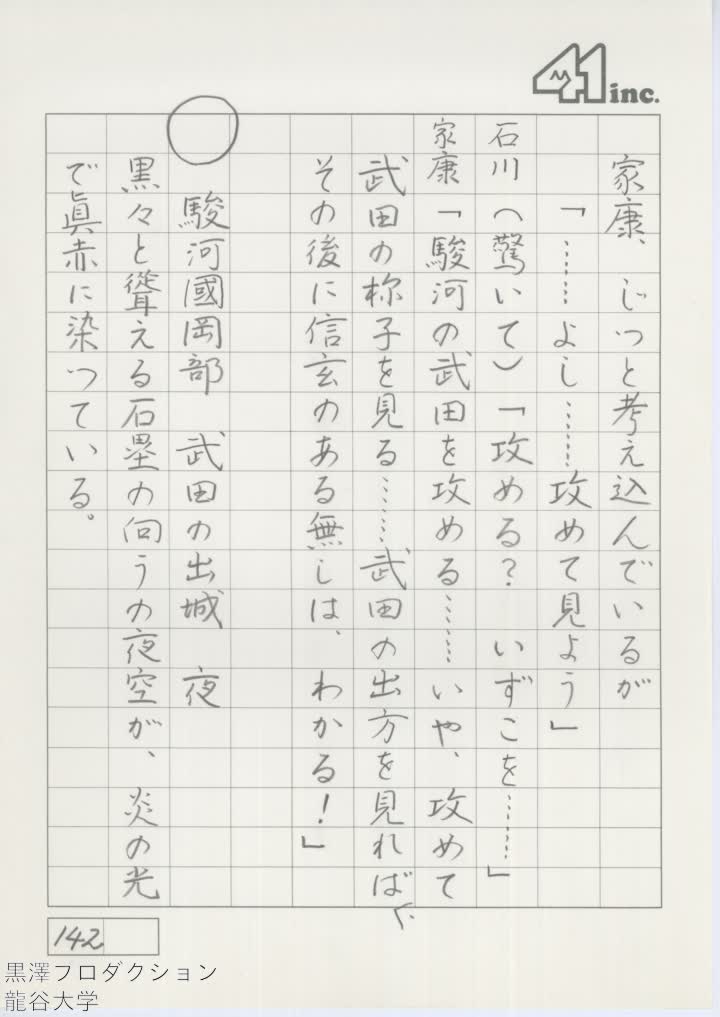 41 inc.
家康、じつと考え込んでいるが
「……よし……攻めて見よう」
石川（驚いて）「攻める？　いずこを……」
家康「駿河の武田を攻める……いや、攻めて
武田の様子を見る……武田の出方を見れば、
その後に信玄のある無しは、わかる！」
○　駿河國岡部　武田の出城　夜
黒々と聳える石塁の向うの夜空が、炎の光
で眞赤に染つている。
142
黒澤フロダクション
龍谷大学